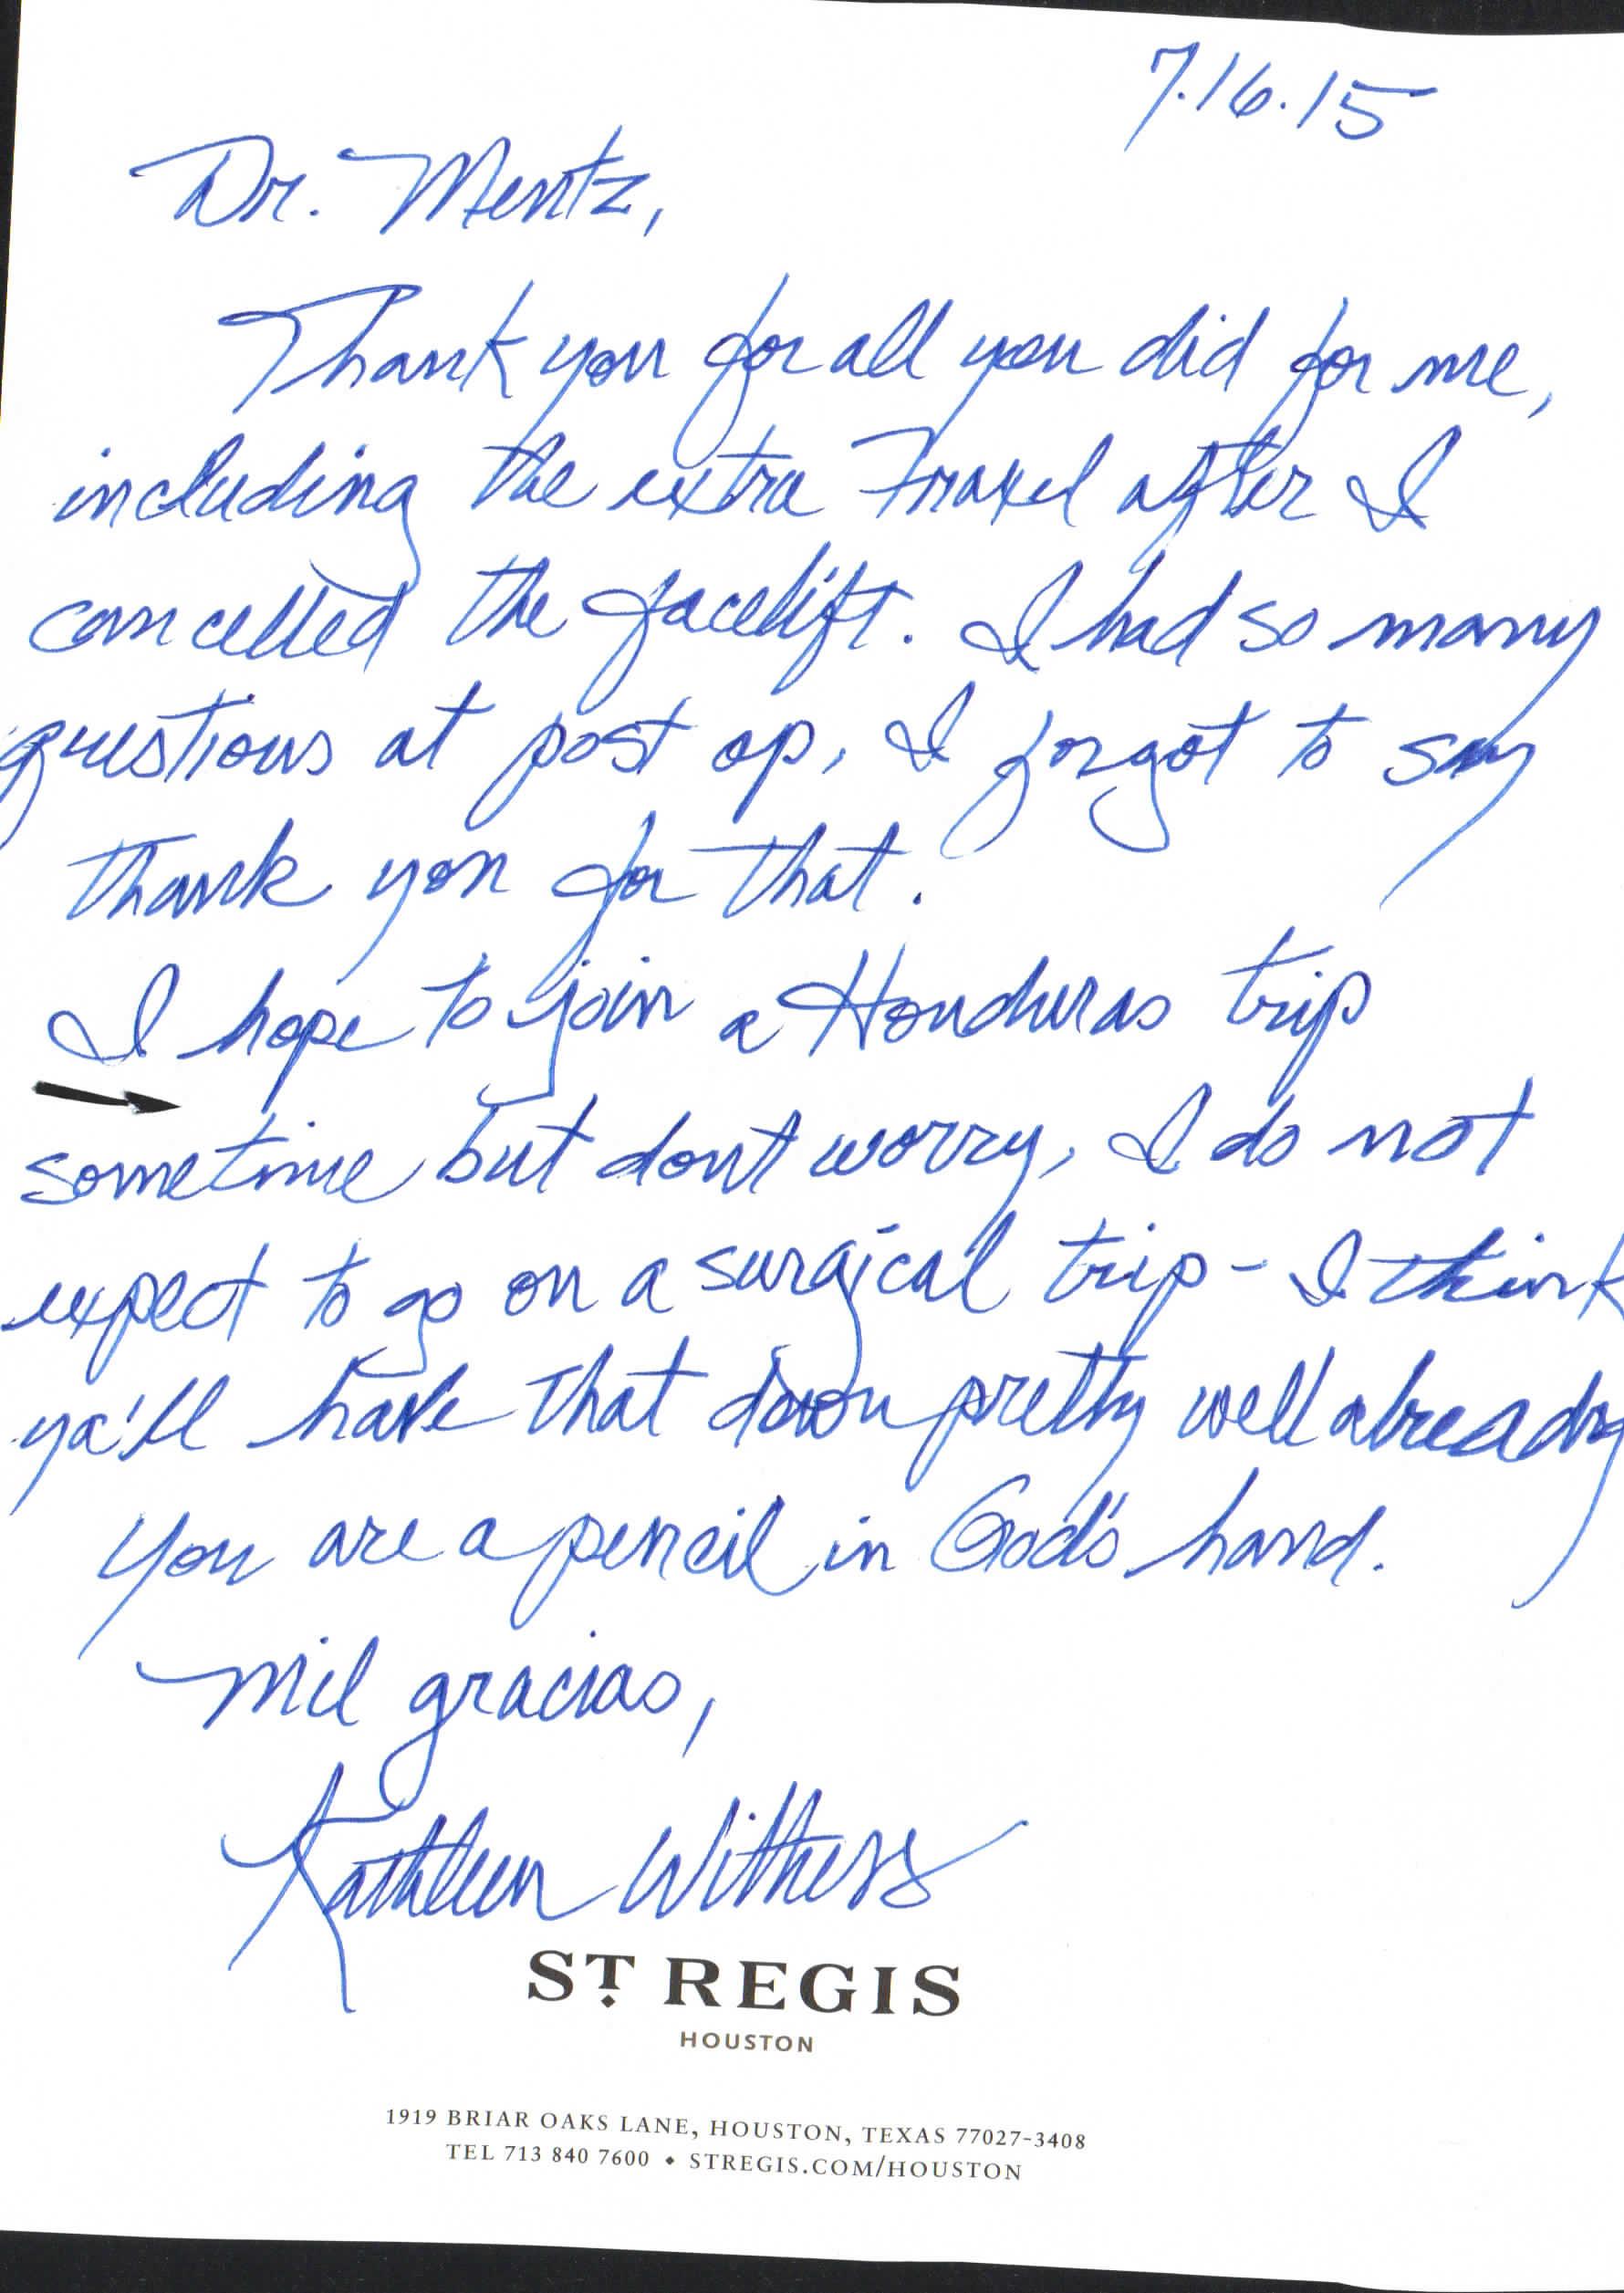 7.16.15
Dr. Mentz,
Thank you for all you did for me,
including the extra Fraxel after I
cancelled the facelift. I had so many
questions at post op, I forgot to say
thank you for that.
I hope to join a Honduras trip
sometime but dont worry, I do not
expect to go on a surgical trip - I think
ya'll have that down pretty well already
You are a pencil in God's hand.
Mil gracias,
Kathleen Withers
ST. REGIS
HOUSTON
1919 BRIAR OAKS LANE, HOUSTON, TEXAS 77027-3408
TEL 713 840 7600 ♦ STREGIS.COM/HOUSTON